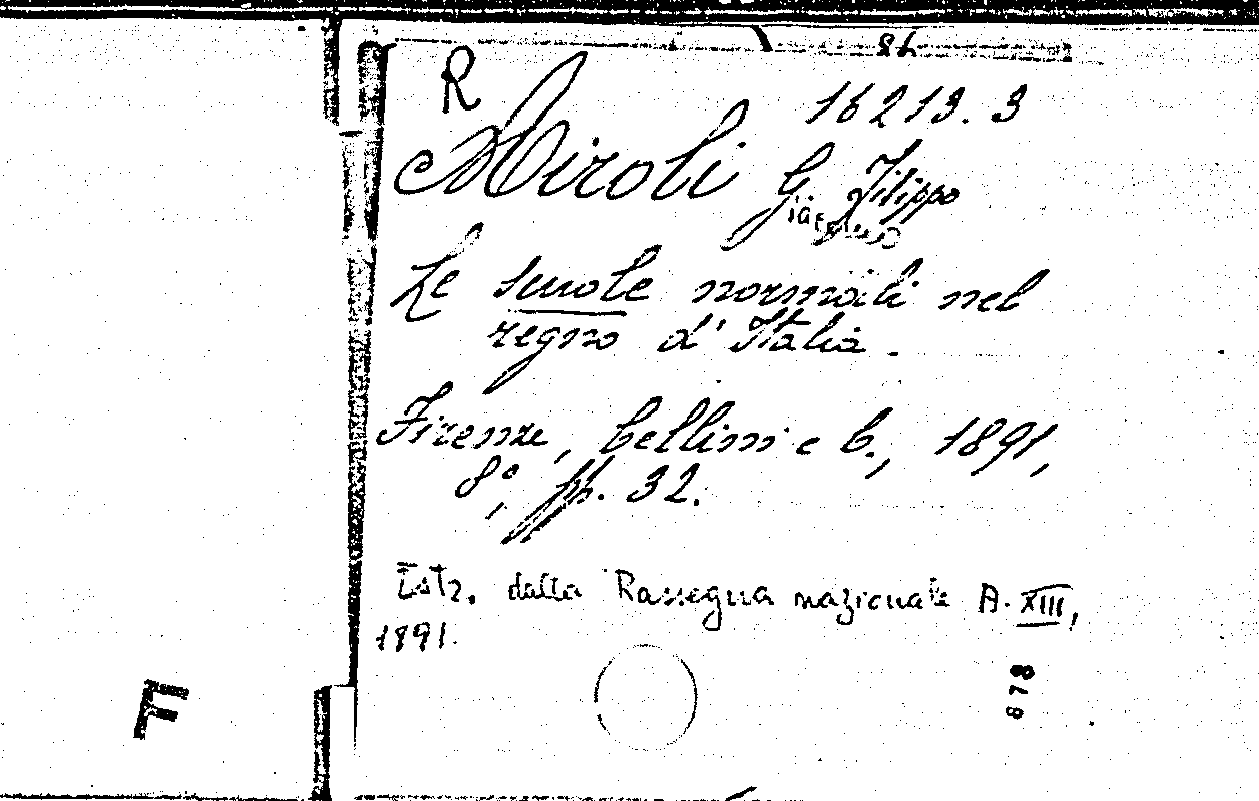 R
16213.3
Miroli G. Filippo
Giacomo
Le scuole normali nel
regno d'Italia.
Firenze, Cellini e C., 1891,
8°, pp. 32.
Estr. dalla Rassegna nazionale A. XIII,
1891.
878
F